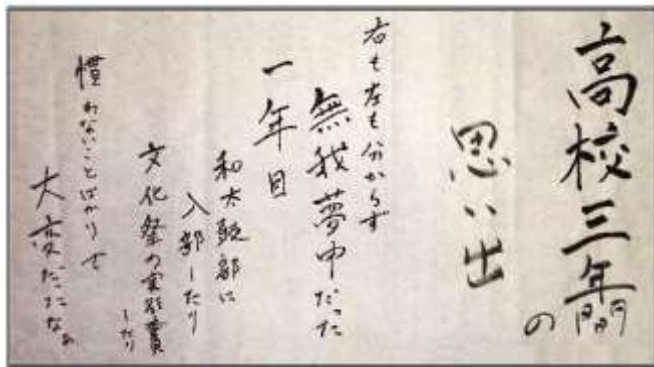 高校三年間の
思い出
右も左も分からず
無我夢中だった
一年目
和太鼓部に
入部したり
文化祭の実行委員
したり
慣れないことばかりで
大変だったなぁ